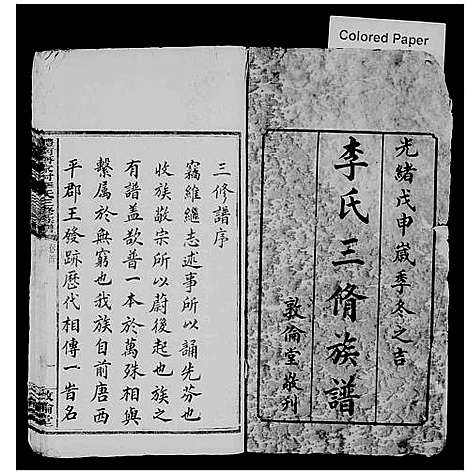 Colored Paper
光緒戊申嵗季冬之吉
李氏三脩族譜
敦倫堂敬刋
三修譜序
竊維繼志述事所以誦先芬也
收族敬宗所以蔚後起也族之
有譜盖欲普一本於萬殊相與
繫屬於無窮也我族自前唐西
平郡王發跡歴代相傳一砦名
敦倫堂